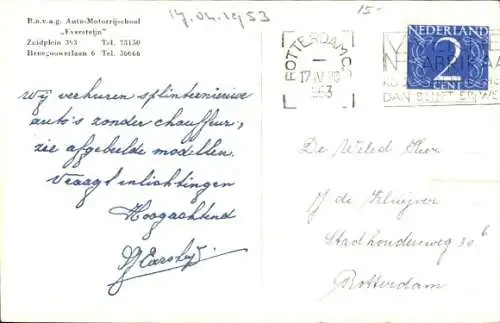 B.o.v.a.g. Auto-Motorrijschool
„Eversteijn"
Zuidplein 393 Tel. 73150
Henegouwerlaan 6 Tel. 36666
17.04.1953
15-
ROTTERDAM
17 IV
1953
NEDERLAND
2
CENT
DAN BLIJFT ER WE
Wij verhuren splinternieuwe
auto's zonder chauffeur,
zie afgebeelde modellen.
Vraagt inlichtingen
Hoogachtend
De Weled Heer
J de Kluijver
Stadhoudersweg 30b
Rotterdam